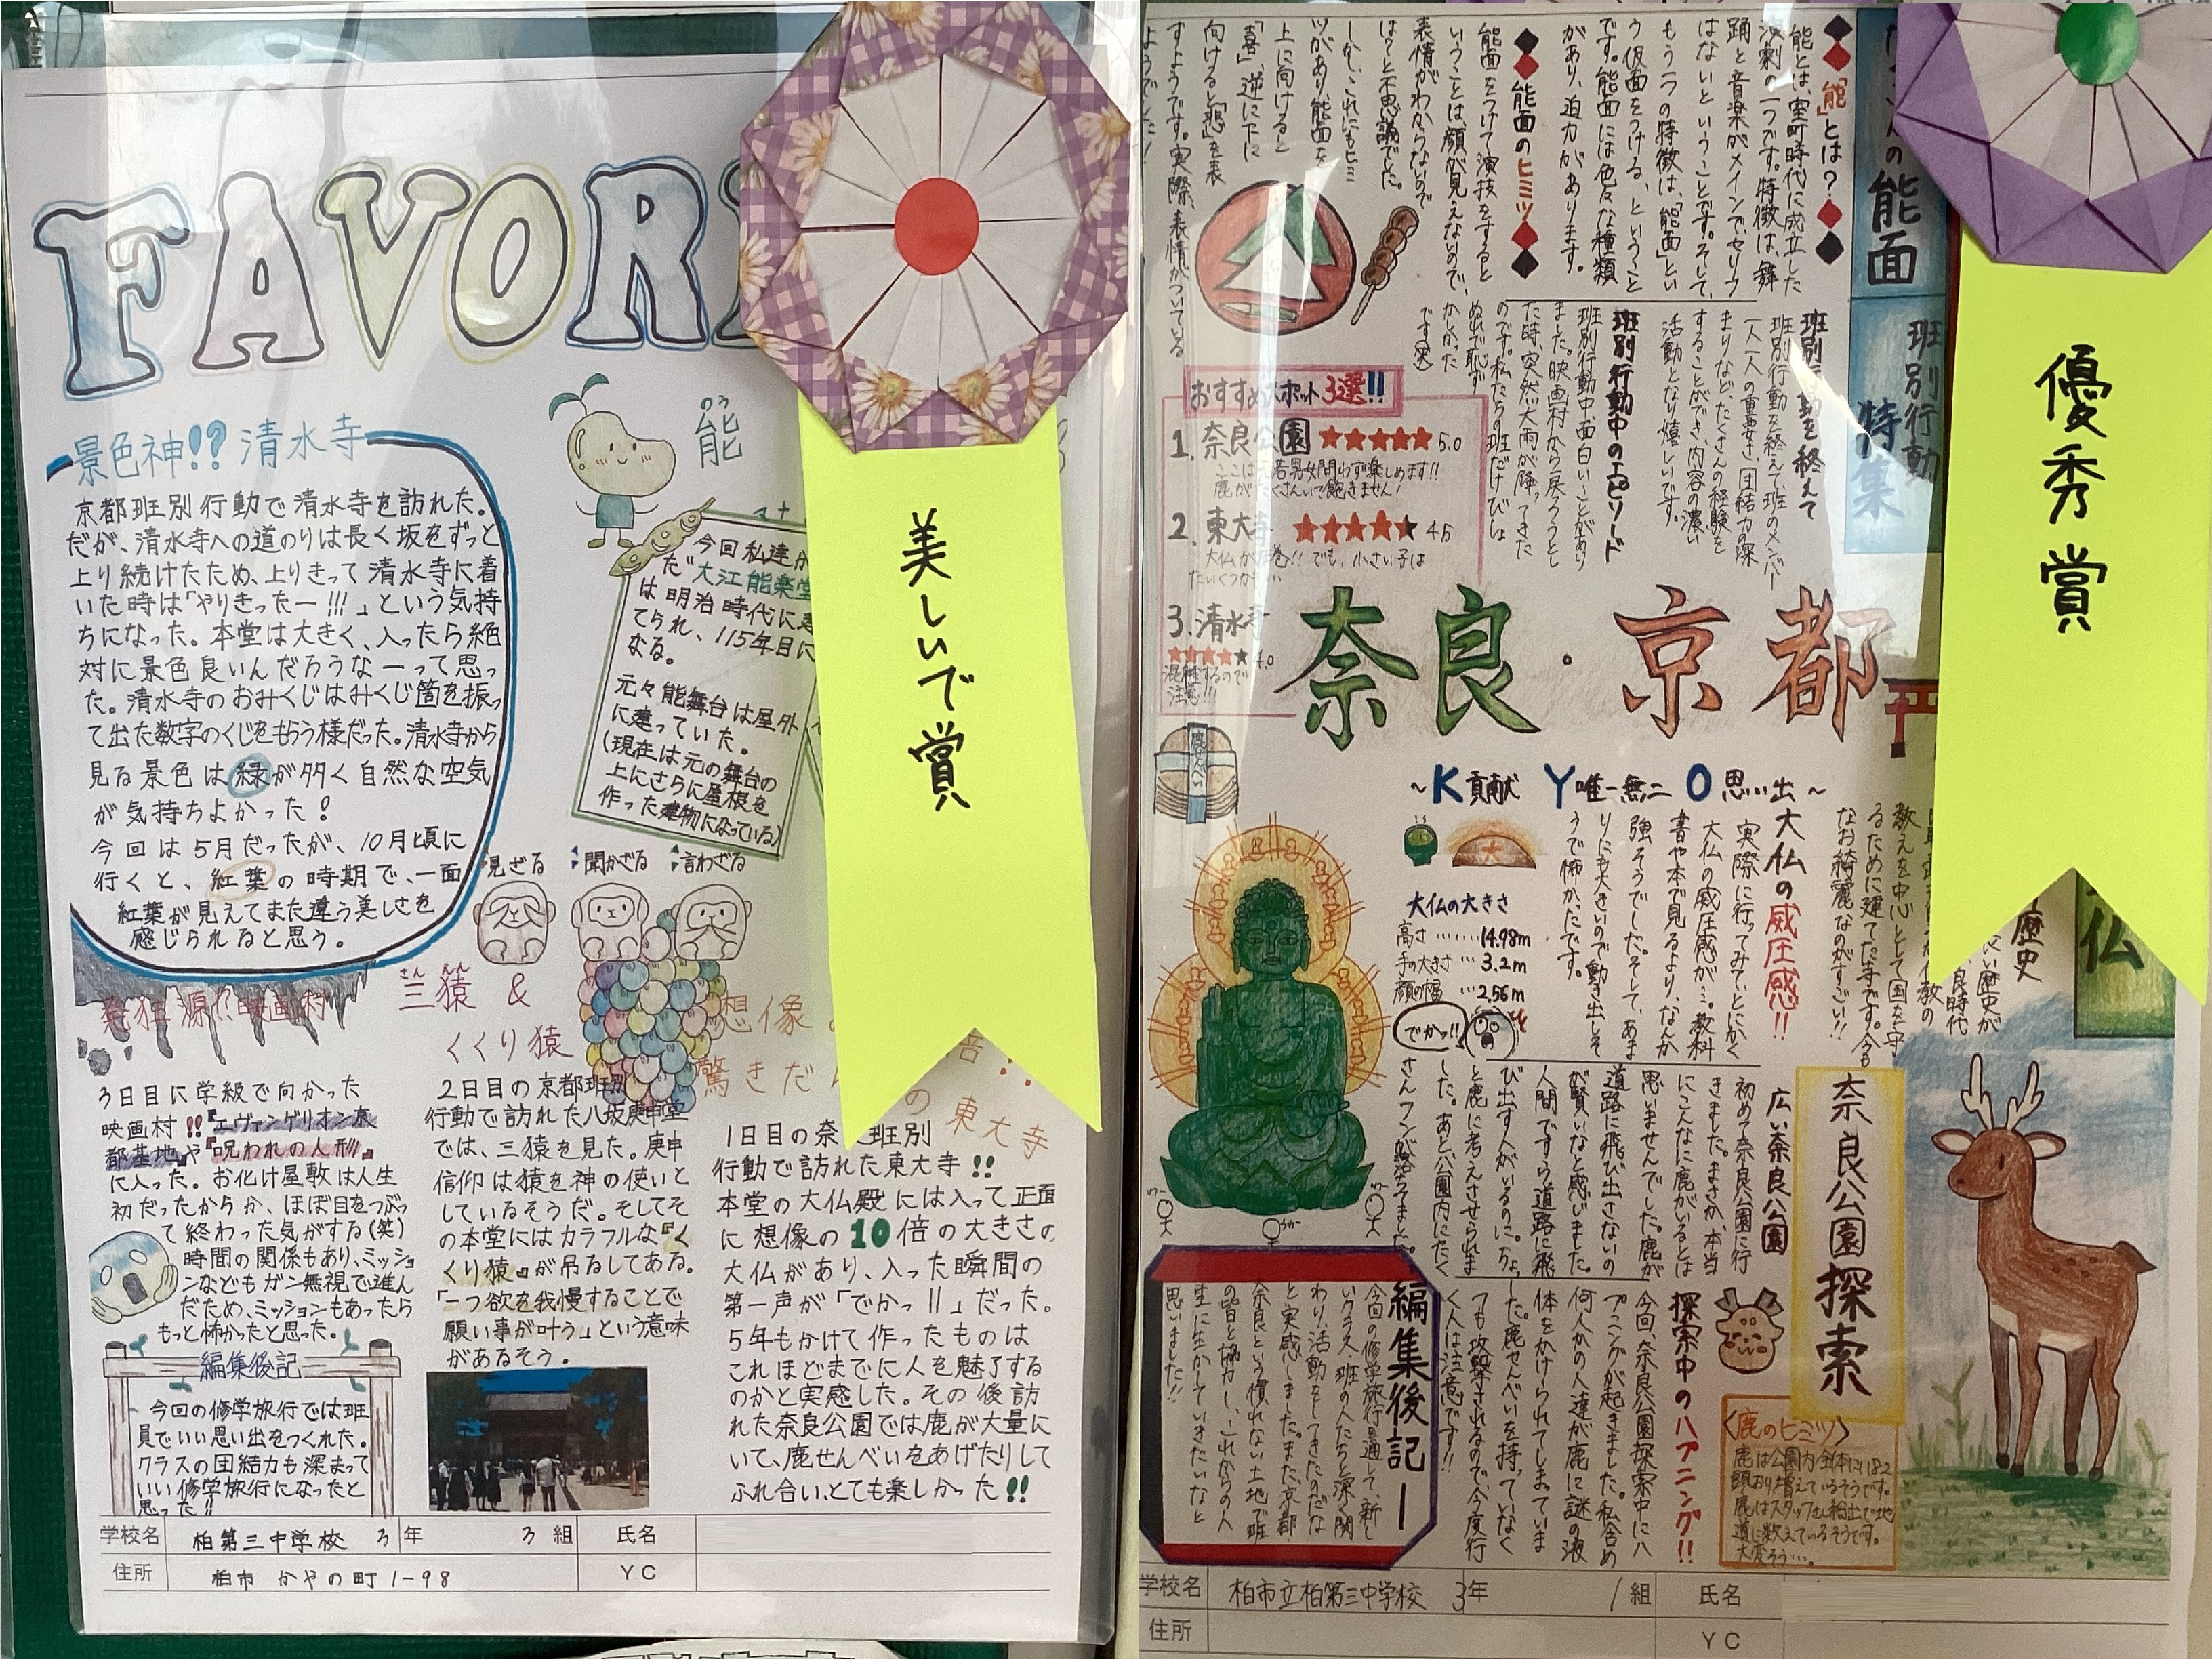 FAVOR
景色神!? 清水寺
京都班別行動で清水寺を訪れた。
だが、清水寺への道のりは長く坂をずっと
上り続けたため、上りきって清水寺に着
いた時は「やりきったー!!!」という気持
ちになった。本堂は大きく、入ったら絶
対に景色良いんだろうなーって思っ
た。清水寺のおみくじはみくじ箇を振っ
て出た数字のくじをもらう様だった。清水寺から
見る景色は緑が多く自然な空気
が気持ちよかった!
今回は5月だったが、10月頃に
行くと、紅葉の時期で、一面
紅葉が見えてまた違う美しさを
感じられると思う。
のう
能
マナ
今回私達が
だ"大江能楽堂
は明治時代に建
てられ、115年目に
なる。
元々能舞台は屋外
に建っていた。
(現在は元の舞台の
上にさらに屋根を
作った建物になっている)
見ざる 聞かざる 言わざる
発狂源!?映画村
3日目に学級で向かった
映画村!!『エヴァンゲリオン京
都基地』や『呪われの人形』
に入った。お化け屋敷は人生
初だったからか、ほぼ目をつぶっ
て終わった気がする(笑)
時間の関係もあり、ミッショ
ンなどもガン無視で進ん
だため、ミッションもあったら
もっと怖かったと思った。
編集後記
今回の修学旅行では班
員でいい思い出をつくれた。
クラスの団結力も深まって
いい修学旅行になったと
思った!!
さんえん
三猿 &
くくり猿
2日目の京都班別
行動で訪れた八坂庚申堂
では、三猿を見た。庚申
信仰は猿を神の使いと
しているそうだ。そしてそ
の本堂にはカラフルな『く
くり猿』が吊るしてある。
「一つ欲を我慢することで
願い事が叶う」という意味
があるそう。
想像
倍!!
驚きだ
の東大寺
1日目の奈 班別
行動で訪れた東大寺!!
本堂の大仏殿には入って正面
に想像の10倍の大きさの
大仏があり、入った瞬間の
第一声が「でかっ!!」だった。
5年もかけて作ったものは
これほどまでに人を魅了する
のかと実感した。その後訪
れた奈良公園では鹿が大量に
いて、鹿せんべいをあげたりして
ふれ合い、とても楽しかった!!
学校名 柏第三中学校 3年 3組 氏名
住所 柏市 かやの町 1-98 YC
美しいで賞
優秀賞
の能面
班別行動
特集
◆◆「能」とは?◆◆
能とは、室町時代に成立した
演劇の一つです。特徴は、舞
踊と音楽がメインでセリフ
はないということです。そして、
もう一つの特徴は、「能面」とい
う仮面をつける、ということ
です。能面には色々な種類
があり、迫力があります。
◆◆能面のヒミツ◆◆
能面をつけて演技をすると
いうことは、顔が見えないので、
表情がわからないので
は?と不思議でした。
しかし、これにもヒミ
ツがあり、能面を
上に向けると
「喜」、逆に下に
向けると「悲」を表
すようです。実際、表情がついている
ようでした!
班別行動を終えて
班別行動を終えて、班のメンバー
一人一人の重要さ、団結力の深
まりなど、たくさんの経験を
することができ、内容の濃い
活動となり嬉しいです。
班別行動中のエピソード
班別行動中、面白いことがあり
ました。映画村から戻ろうとし
た時、突然大雨が降ってきた
のです。私たちの班だけびしょ
ぬれで恥ず
かしかった
です(笑)
おすすめスポット3選!!
1.奈良公園 ★★★★★5.0
ここは老若男女問わず楽しめます!!
鹿がたくさんいて飽きません!
2.東大寺 ★★★★★4.5
大仏が圧巻!!でも、小さい子は
たいくつかも…
3.清水寺
★★★★★4.0
混雑するので
注意!!!
奈良・京都
~K貢献 Y唯一無二 O思い出~
鹿せんべい
仏
歴史
大仏の威圧感!!
実際に行ってみて、とにかく
大仏の威圧感が…。教科
書や本で見るより、なんか
強そうでした。そして、あま
りにも大きいので動き出しそ
うで怖かったです。
教えを中心として国を守
るために建てた寺です。今も
なお綺麗なのがすごい!!
大仏の大きさ
高さ……14.98m
手の大きさ…3.2m
顔の幅…2.56m
でかっ!!
奈良公園探索
広い奈良公園
初めて奈良公園に行
きました。まさか、本当
にこんなに鹿がいるとは
思いませんでした。鹿が
道路に飛び出さないの
が賢いなと感じました。
人間ですら道路に飛
び出す人がいるのに。ちょっ
と鹿に考えさせられま
した。あと、公園内にたく
さんフンが落ちてました。
探索中のハプニング!!
今回、奈良公園探索中にハ
プニングが起きました。私含め
何人かの人達が鹿に謎の液
体をかけられてしまっていま
した。鹿せんべいを持っていなく
ても攻撃されるので、今度行
く人は注意です!!
〈鹿のヒミツ〉
鹿は公園内全体に1182
頭おり、増えているそうです。
鹿はスタッフさん総出で地
道に数えているそうです。
大変そう…。
編集後記ー
今回の修学旅行を通して、新し
いクラス、班の人たちと深く関
わり、活動をしてきたのだな
と実感しました。また、京都・
奈良という慣れない土地で班
の皆と協力し、これからの人
生に生かしていきたいなと
思いました!!
学校名 柏市立柏第三中学校 3年 1組 氏名
住所 YC